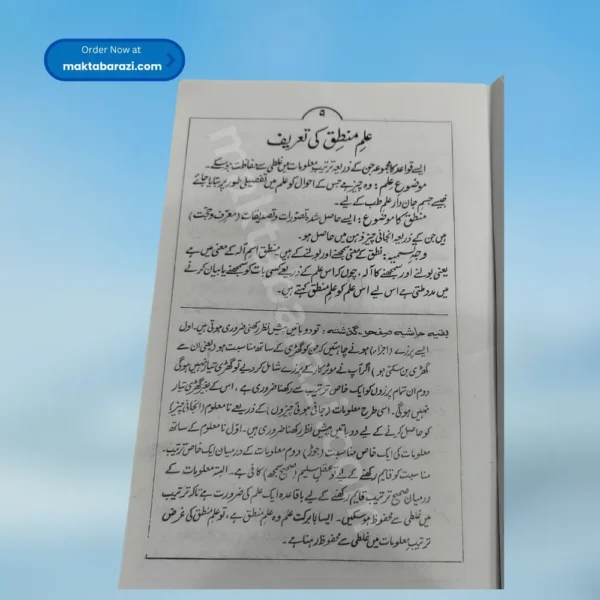 Order Now at
maktabarazi.com
۵
علمِ منطق کی تعریف
ایسے قواعد کا مجموعہ جن کے ذریعہ ترتیبِ معلومات میں غلطی سے حفاظت ہو سکے۔
موضوعِ علم : وہ چیز ہے جس کے احوال کو علم میں تفصیلی طور پر بتایا جائے
جیسے جسم جان دار علمِ طب کے لیے۔
منطق کا موضوع : ایسے حاصل شدہ تصورات و تصدیقات (معرف و حجت)
ہیں جن کے ذریعہ انجانی چیز ذہن میں حاصل ہو۔
وجہِ تسمیہ : نطق کے معنیٰ سمجھنے اور بولنے کے ہیں منطق اسم آلہ کے معنیٰ میں ہے
یعنی بولنے اور سمجھنے کا آلہ، چوں کہ اس علم کے ذریعے کسی بات کو سمجھنے یا بیان کرنے
میں مدد ملتی ہے اس لیے اس علم کو علمِ منطق کہتے ہیں۔
بقیہ حاشیہ صفحہ گذشتہ : تو دو باتیں پیش نظر رکھنی ضروری ہوتی ہیں۔ اول
ایسے پرزے (اجزاء) ہونے چاہئیں کہ جن کو گھڑی کے ساتھ مناسبت ہو (یعنی ان سے
گھڑی بن سکتی ہو) اگر آپ نے موٹر کار کے پرزے شامل کر دیے تو گھڑی تیار نہیں ہوگی
دوم ان تمام پرزوں کو ایک خاص ترتیب سے رکھنا ضروری ہے، اس کے بغیر گھڑی تیار
نہیں ہوگی۔ اسی طرح معلومات (جانی ہوئی چیزوں) کے ذریعے نامعلوم (انجانی چیز)
کو حاصل کرنے کے لیے دو باتیں پیش نظر رکھنا ضروری ہیں۔ اوّل نامعلوم کے ساتھ
معلومات کی ایک خاص مناسبت (جوڑ) دوم معلومات کے درمیان ایک خاص ترتیب۔
مناسبت کو قایم رکھنے کے لیے تو عقلِ سلیم (صحیح سمجھ) کافی ہے۔ البتہ معلومات کے
درمیان صحیح ترتیب قایم رکھنے کے لیے باقاعدہ ایک علم کی ضرورت ہے تاکہ ترتیب
میں غلطی سے محفوظ ہو سکیں۔ ایسا بابرکت علم وہ علمِ منطق ہے، تو علمِ منطق کی غرض
ترتیبِ معلومات میں غلطی سے محفوظ رہنا ہے۔